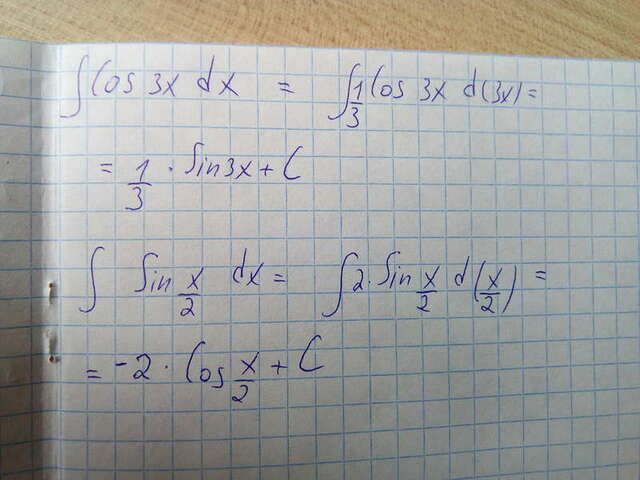 ∫ Cos 3x dx = ∫ 1/3 Cos 3x d(3x) =
= 1/3 · Sin 3x + C
∫ Sin x/2 dx = ∫ 2 · Sin x/2 d(x/2) =
= -2 · Cos x/2 + C